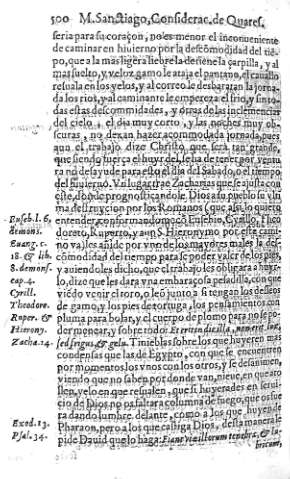 500 M. Sanctiago, Considerac. de Quares.
seria para su coraçon, no es menor el inconueniente
de caminar en hiuierno por la descomodidad del tie-
po, que a la mas ligera liebre la detiene la çarpilla, y al
mas suelto, y veloz gamo le ataja el pantano, el cauallo
resuala en los yelos, y al correo le desbaratan la jorna-
da los rios, y al caminante le empereza el frio, y sin to-
das estas descommidades, y otras de las inclemencias
del cielo, el dia muy corto, y las noches muy ob-
scuras, no dexan hazer acommodada jornada, pues
aun el trabajo dize Christo que será tan grande,
que siendo fuerça el huyr del, seria de tener por ventu
ra no desayude para esto el dia del Sabado, o el tiempo
del hiuierno. Vn lugar trae Zacharias que se ajusta con
este, donde prognosticando le Dios a su pueblo la vlti
ma destruycion por los Romanos (que assi lo quiere
Euseb. l. 6. entender, conformandome con Eusebio, Cyrillo, Theo
demons. doreto, Ruperto, y aun S. Hieronymo por este cami-
Euang. c. no va) les añide por vno de los mayores males la des-
18. & lib. cõmodidad del tiempo para se poder valer de los pies,
8. demons. y auiendoles dicho, que el trabajo les obligara a huyr-
cap. 4. lo, dize que les dara vna embaraçosa pesadilla, con que
Cyrill. viédo venir el toro, o leõ junto a si tengan los desseos
Theodore. de gamo, y los pies de tortuga, los pensamientos con
Ruper. & pluma para bolar, y el cuerpo de plomo para no se po-
Hierony. der menear, y sobre todo: Et erit in die illa, non erit lux,
Zacha. 14. sed frigus & gelu. Tinieblas sobre los que huyeren mas
condensas que las de Egypto, con que se encuentren
por momentos los vnos con los otros, y se desanimen,
viendo que no sabe por donde van, nieue, en que ato
llen, yelo en que resualen, que si huyerades en serui-
cio de Dios no os faltara columna de fuego, que os fue
ra dando lumbre delante, como a los que huyen de
Exod. 13. Pharaon, pero a los que castiga Dios, desta manera le
Psal. 34. pide Dauid que lo haga: Fiant viae illorum tenebræ, & lu-
bricum,